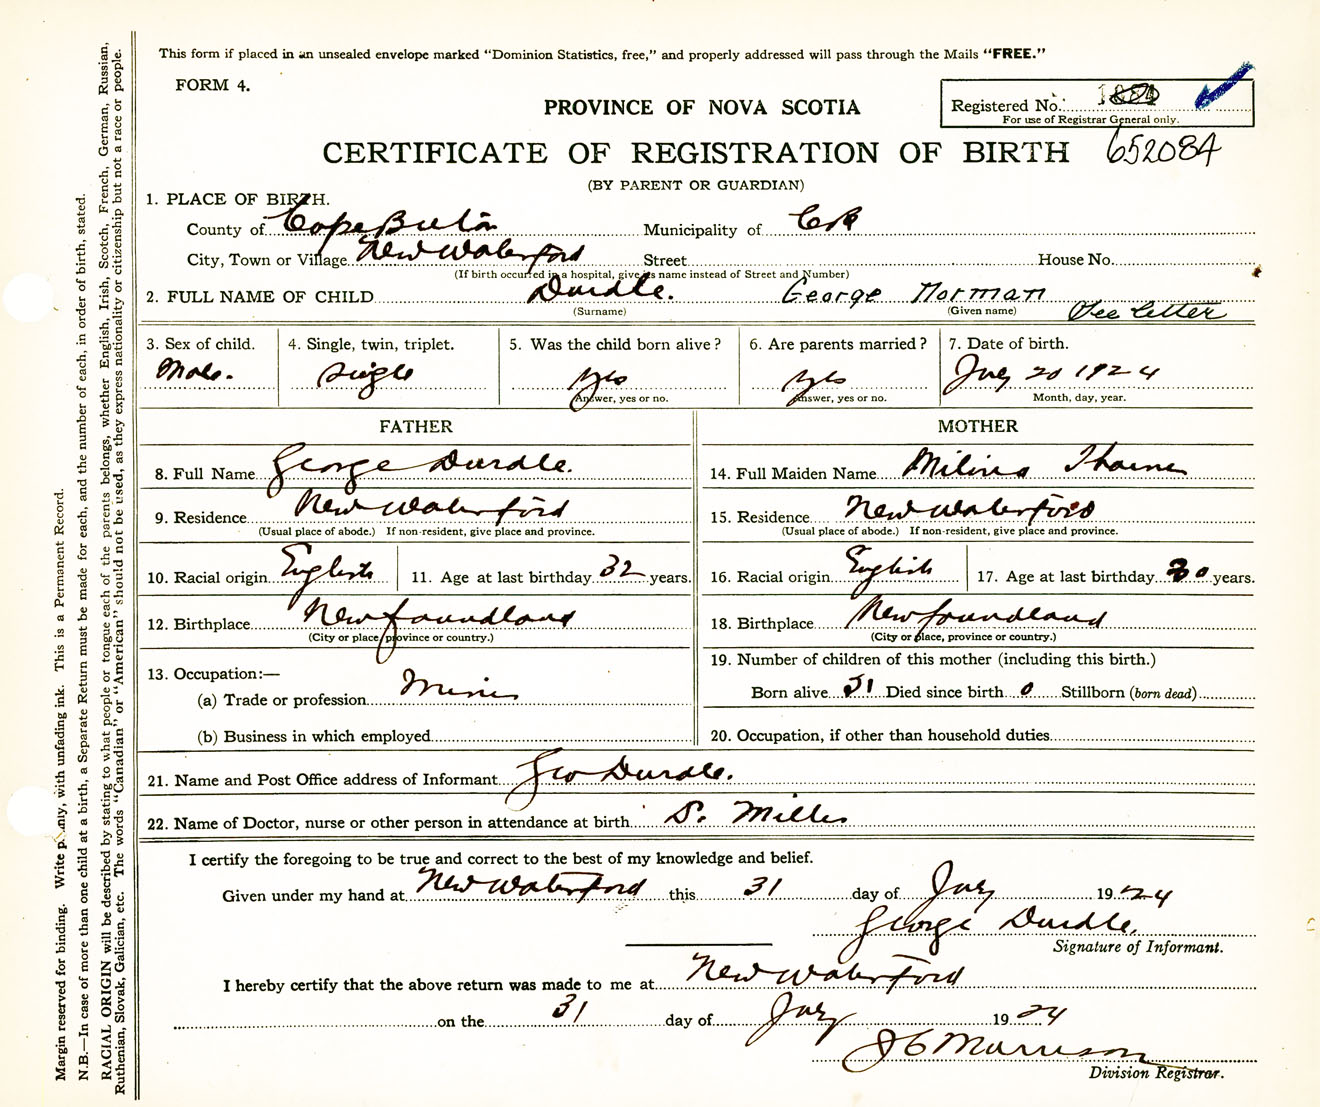 This form if placed in an unsealed envelope marked “Dominion Statistics, free,” and properly addressed will pass through the Mails “FREE.”
FORM 4.
PROVINCE OF NOVA SCOTIA
Registered No.
For use of Registrar General only.
652084
CERTIFICATE OF REGISTRATION OF BIRTH
(BY PARENT OR GUARDIAN)
1. PLACE OF BIRTH.
County of Cape Breton Municipality of CB
City, Town or Village New Waterford Street House No.
(If birth occurred in a hospital, give its name instead of Street and Number)
2. FULL NAME OF CHILD Durdle. George Norman
(Surname) (Given name) See letter
3. Sex of child. 4. Single, twin, triplet. 5. Was the child born alive? 6. Are parents married? 7. Date of birth.
Male. single yes yes July 20 1924
Answer, yes or no. Answer, yes or no. Month, day, year.
FATHER MOTHER
8. Full Name George Durdle. 14. Full Maiden Name
9. Residence New Waterford 15. Residence New Waterford
(Usual place of abode.) If non-resident, give place and province. (Usual place of abode.) If non-resident, give place and province.
10. Racial origin English 11. Age at last birthday 32 years. 16. Racial origin English 17. Age at last birthday 30 years.
12. Birthplace Newfoundland 18. Birthplace Newfoundland
(City or place, province or country.) (City or place, province or country.)
19. Number of children of this mother (including this birth.)
13. Occupation:—
(a) Trade or profession Miner Born alive Died since birth 0 Stillborn (born dead)
(b) Business in which employed 20. Occupation, if other than household duties
21. Name and Post Office address of Informant Geo Durdle.
22. Name of Doctor, nurse or other person in attendance at birth S. Miller
I certify the foregoing to be true and correct to the best of my knowledge and belief.
Given under my hand at New Waterford this 31 day of July 1924
George Durdle.
Signature of Informant.
I hereby certify that the above return was made to me at New Waterford
on the 31 day of July 1924
J C Morrison
Division Registrar.
Margin reserved for binding. Write plainly, with unfading ink. This is a Permanent Record.
N.B.—In case of more than one child at a birth, a Separate Return must be made for each, and the number of each, in order of birth, stated.
RACIAL ORIGIN will be described by stating to what people or tongue each of the parents belongs, whether English, Irish, Scotch, French, German, Russian,
Ruthenian, Slovak, Galician, etc. The words “Canadian” or “American” should not be used, as they express nationality or citizenship but not a race or people.